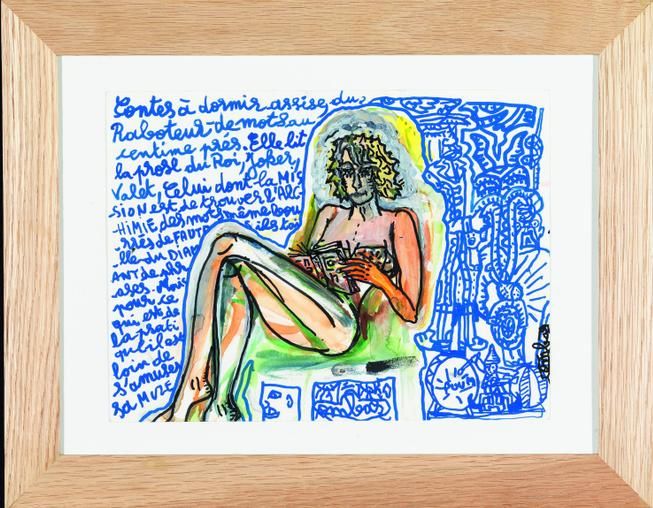 Contes à dormir assise, du
Raboteur-de-mots au
centime près. Elle lit
la prose du Roi, Joker,
Valet, Celui dont la Mis
SION est de trouver l'ALC
-HIMIE des mots même bou
rrés de FAUT
ils toi
lle du DIAM
ANT de phr
ases. Mais
pour ce
qui est de
la prati
qu'il est
loin de
s'amuser
sa MUZE